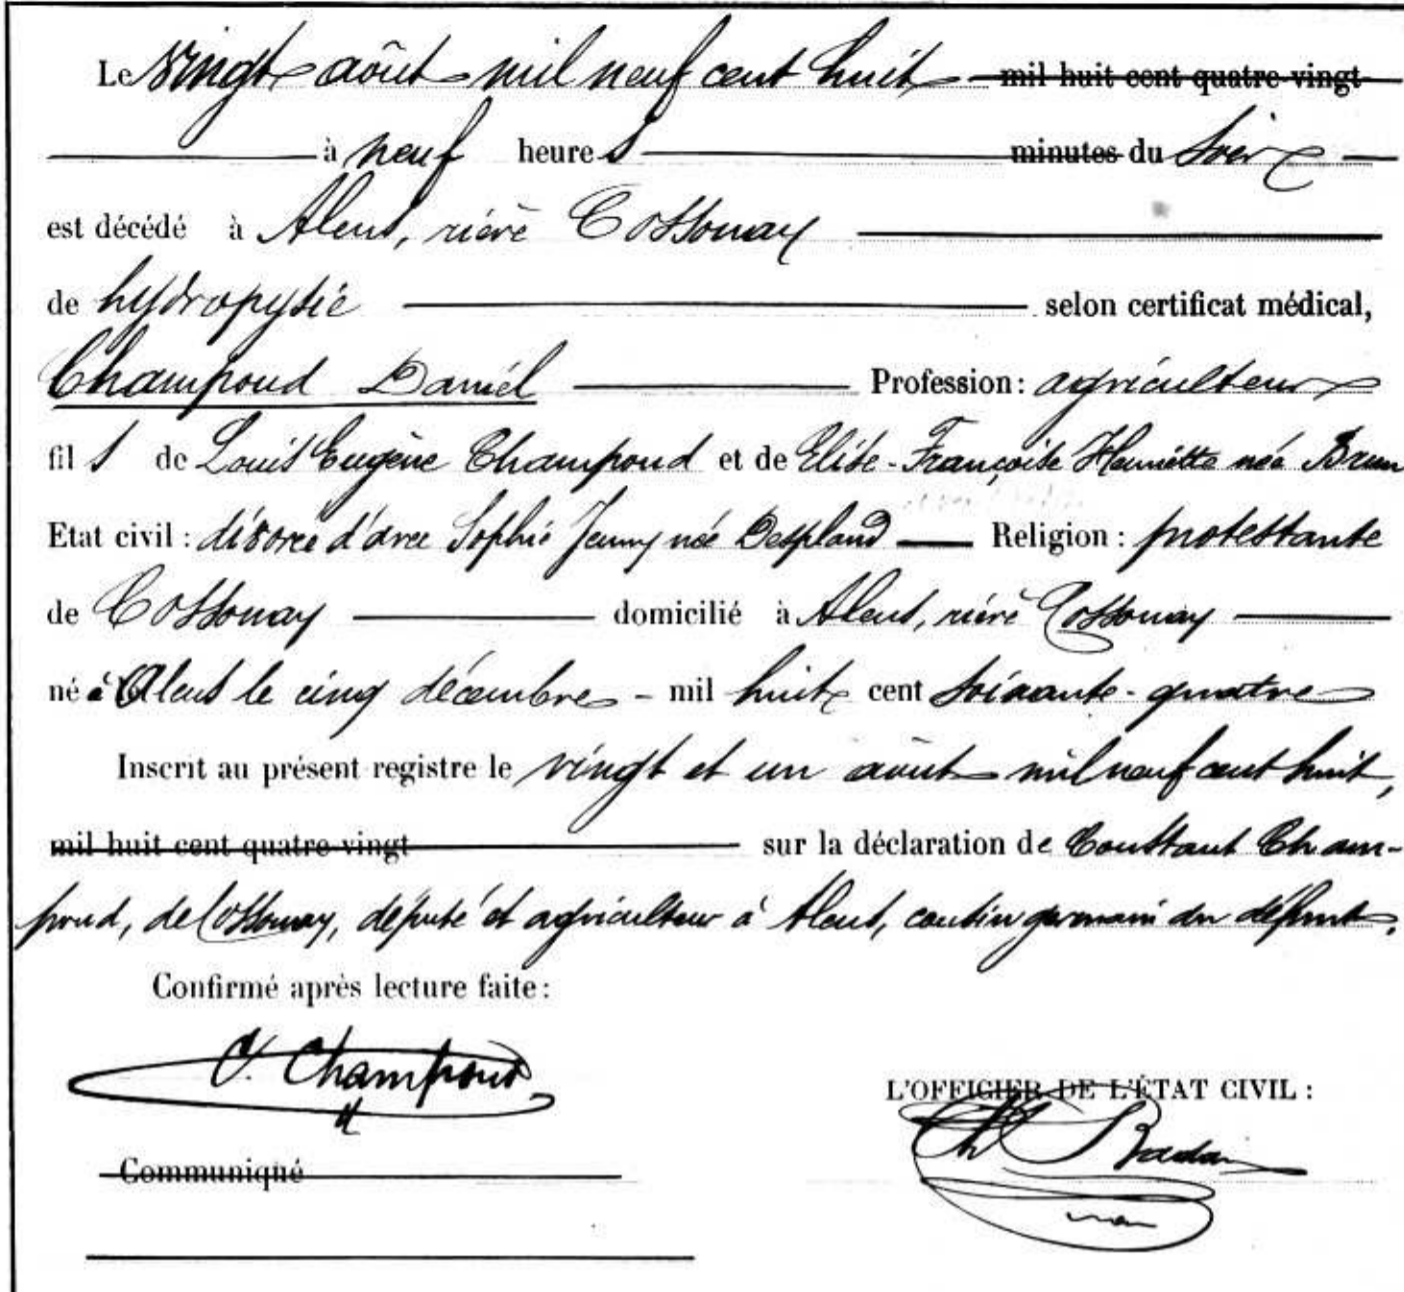 Le vingt août mil neuf cent huit mil huit cent quatre-vingt
à neuf heures minutes du soir
est décédé à Alens, rière Cossonay
de hydropysie selon certificat médical,
Champoud Daniel Profession: agriculteur
fils de Louis Eugène Champoud et de Elise-Françoise Henriette née Brun
Etat civil: divorcé d'avec Sophie Jenny née Despland Religion: protestante
de Cossonay domicilié à Alens, rière Cossonay
né à Alens le cinq décembre - mil huit cent soixante-quatre
Inscrit au présent registre le vingt et un août mil neuf cent huit,
mil huit cent quatre-vingt sur la déclaration de Constant Cham-
poud, de Cossonay, député et agriculteur à Alens, cousin germain du défunt.
Confirmé après lecture faite:
C. Champoud
L'OFFICIER DE L'ÉTAT CIVIL:
Communiqué